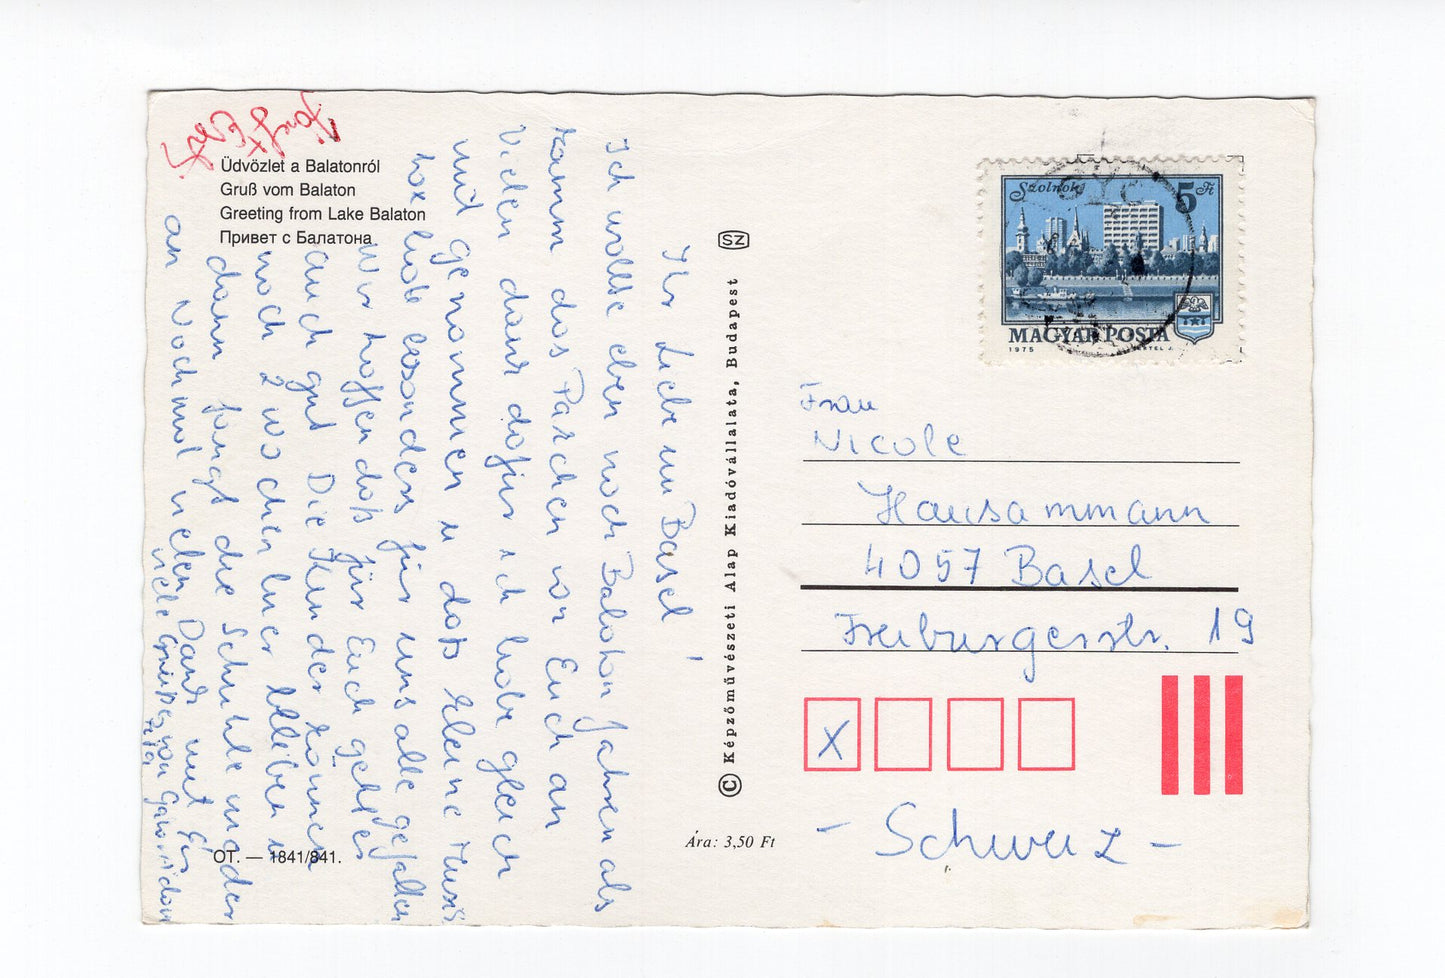 Üdvözlet a Balatonról
Gruß vom Balaton
Greeting from Lake Balaton
Привет с Балатона
Ihr Liebe in Basel!
Ich wollte eben noch Balaton fahren als
kamm das Parchen von Euch an
Vielen dank dafür ich habe gleich
mit genommen u dass kleine Musik
box hat besonders für uns alle gefallen
Wir hoffen daß für Euch geht es
auch gut Die Kinder können
noch 2 wochen hier bleiben u
dann fangt die Schuhle wieder
an Noch mal vielen Dank mit
viele Grüße von
OT. — 1841/841.
SZ
© Képzőművészeti Alap Kiadóvállalata, Budapest
Ára: 3,50 Ft
Szolnok
5 Ft
MAGYAR POSTA
1975
Frau
Nicole
Hausammann
4057 Basel
Freiburgerstr. 19
X
- Schweiz -